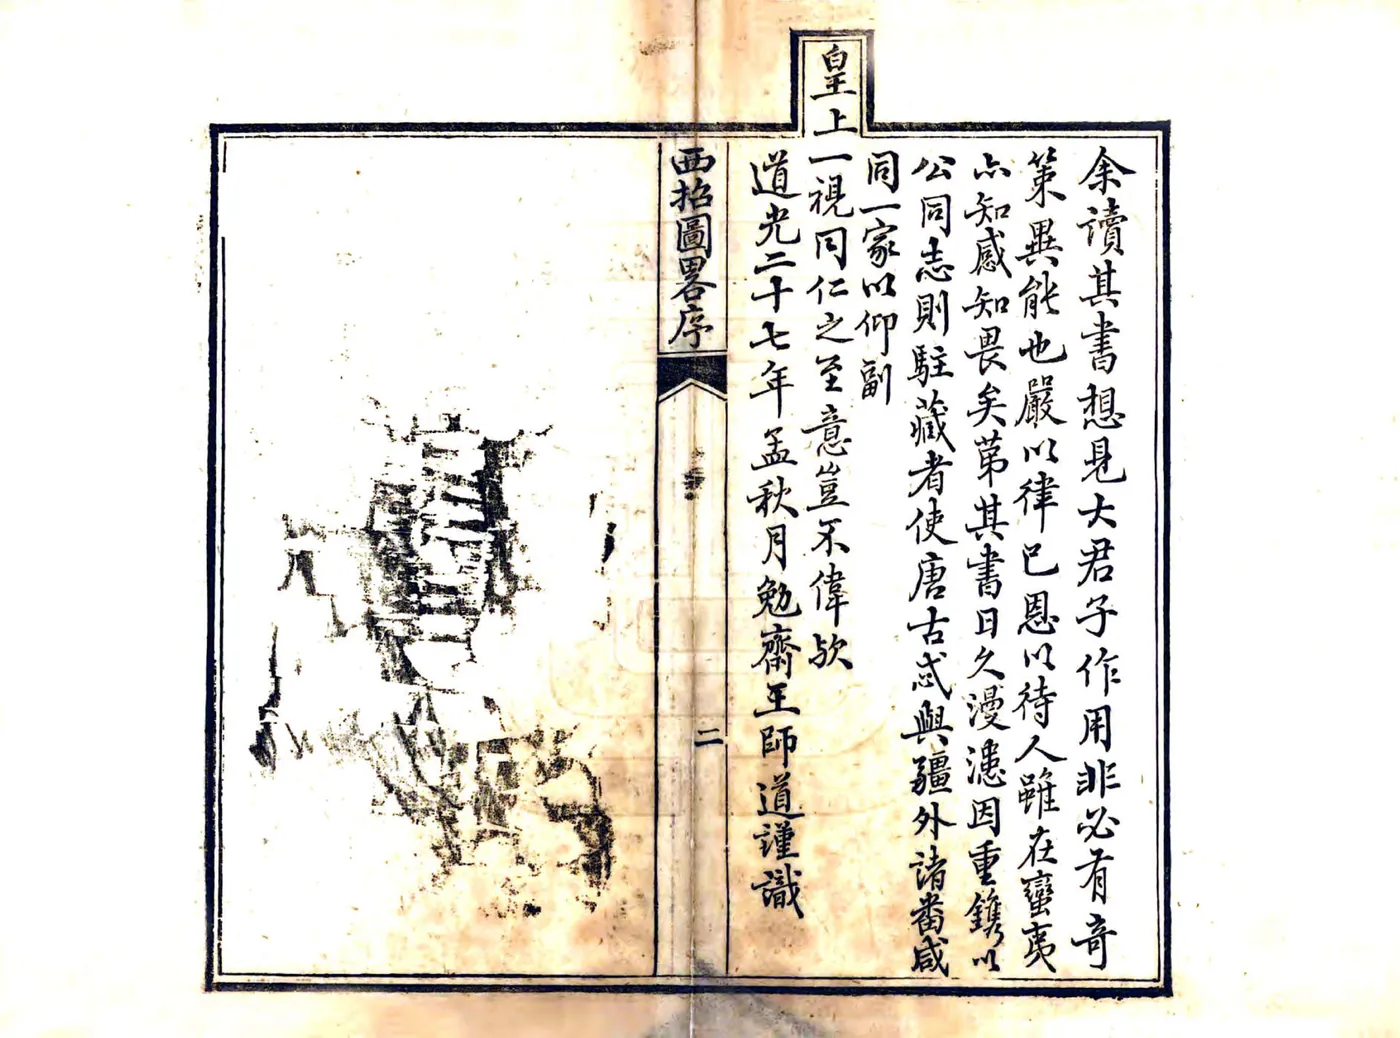 余讀其書想見大君子作用非必有奇
策異能也嚴以律已恩以待人雖在蠻夷
亦知感知畏矣苐其書日久漫漶因重鐫以
公同志則駐藏者使唐古忒與疆外諸畨咸
同一家以仰副
皇上一視同仁之至意豈不偉歟
道光二十七年孟秋月勉齋王師道謹識
西招圖畧序
二